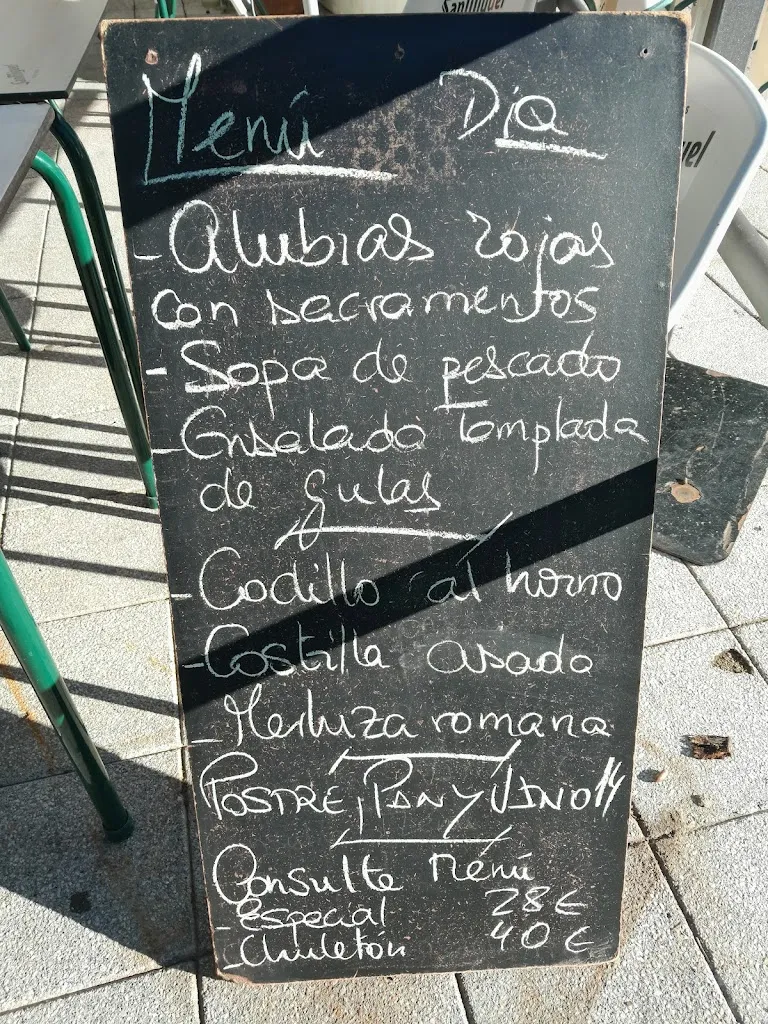 San Miguel
Menú Día
- Alubias rojas
con sacramentos
- Sopa de pescado
- Ensalada templada
de gulas
- Codillo al horno
- Costilla asada
- Merluza romana
POSTRE, PAN y VINO 14
Consulte Menú
- Especial 28 €
- Chuletón 40 €